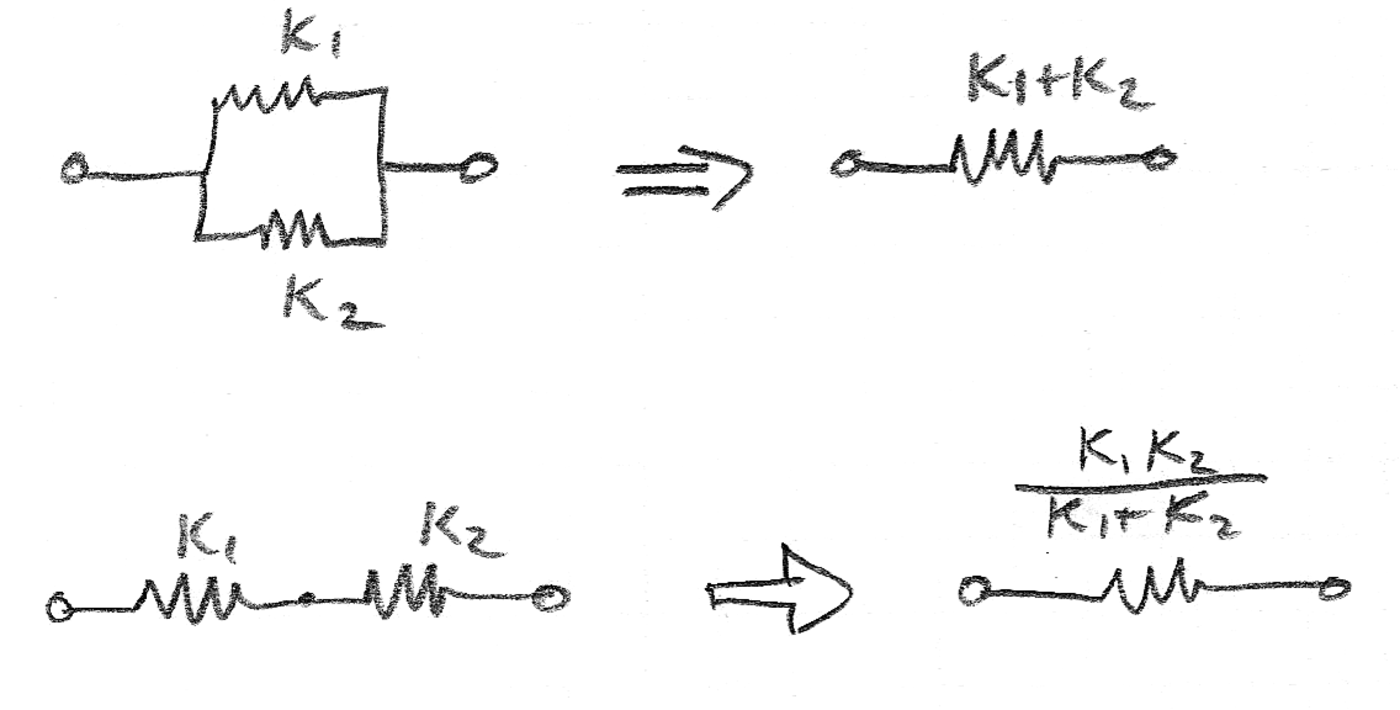 K₁
K₁+K₂
K₂
K₁ K₂
K₁+K₂
K₁
K₂